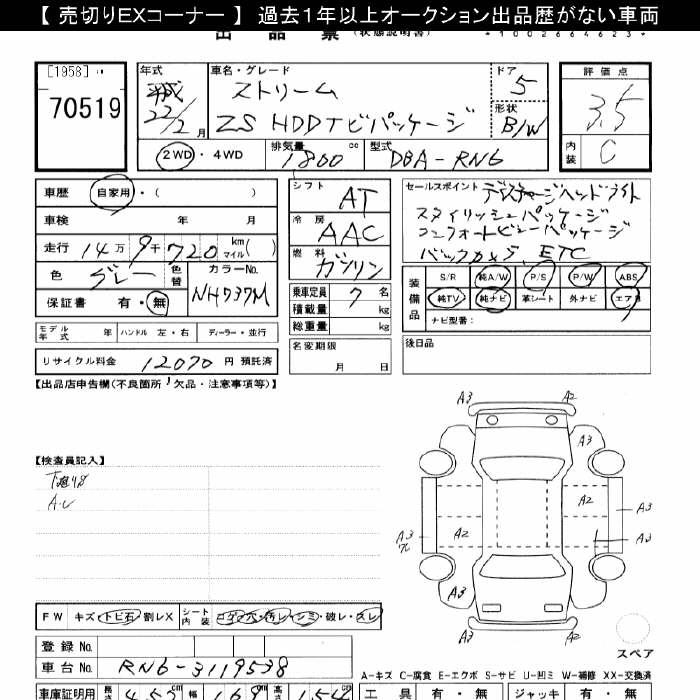 【 売切りEXコーナー 】 過去1年以上オークション出品歴がない車両
出 品 票 (状態説明書) *1002664623*
[1958]
70519
年式
平成
22/2 月
車名・グレード
ストリーム
ZS HDDナビパッケージ
ドア
5
形状
B/W
評価点
3.5
内装
C
2WD・4WD
排気量 cc
1800
型式
DBA-RN6
車歴 自家用・( )
車検 年 月
走行 14万9千720 km マイル( )
色 グレー 色替
カラーNo.
NH737M
保証書 有・無
シフト AT
冷房 AAC
燃料 ガソリン
乗車定員 7 名
積載量 kg
総重量 kg
名変期限
月 日
セールスポイント ディスチャージヘッドライト
スタイリッシュパッケージ
コンフォートビューパッケージ
バックカメラ、ETC
装備品
S/R 純A/W P/S P/W ABS
純TV 純ナビ 革シート 外ナビ エアB
ナビ型番:
後日品
モデル年式 年 ハンドル 左・右 ディーラー・並行
リサイクル料金 12070 円 預託済
【出品店申告欄(不良箇所、欠品・注意事項等)】
【検査員記入】
下廻りS
A3 A2
A3
A2
A3
A3
A2
A3
A3
A3
A3 A2
FW キズ・トビ石・割レX シート内装 コゲ・穴・汚レ・シミ・破レ・スレ
スペア
登録 No.
車台 No. RN6-3119538
A-キズ C-腐食 E-エクボ S-サビ U-凹ミ W-補修 XX-交換済
車庫証明用 長さ 457 cm 幅 169 cm 高さ 154 cm
工具 有・無 ジャッキ 有・無